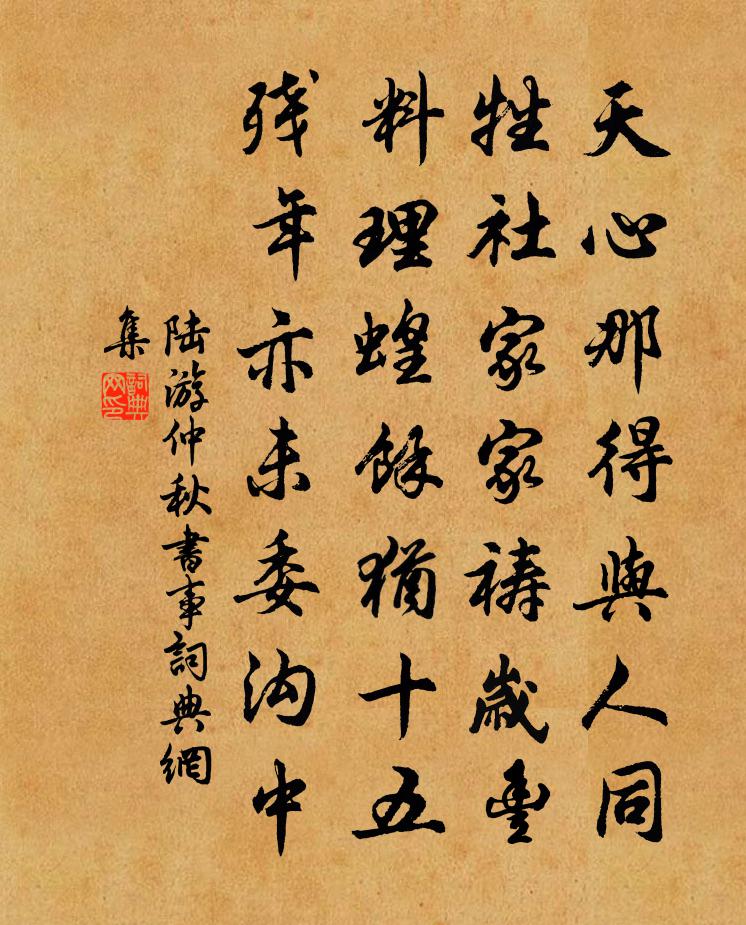 天心那得與人同
牲社家家禱歲豐
料理蝗餘猶十五
殘年亦未委沟中
陆游仲秋書事詞典網
集
詞典
网印